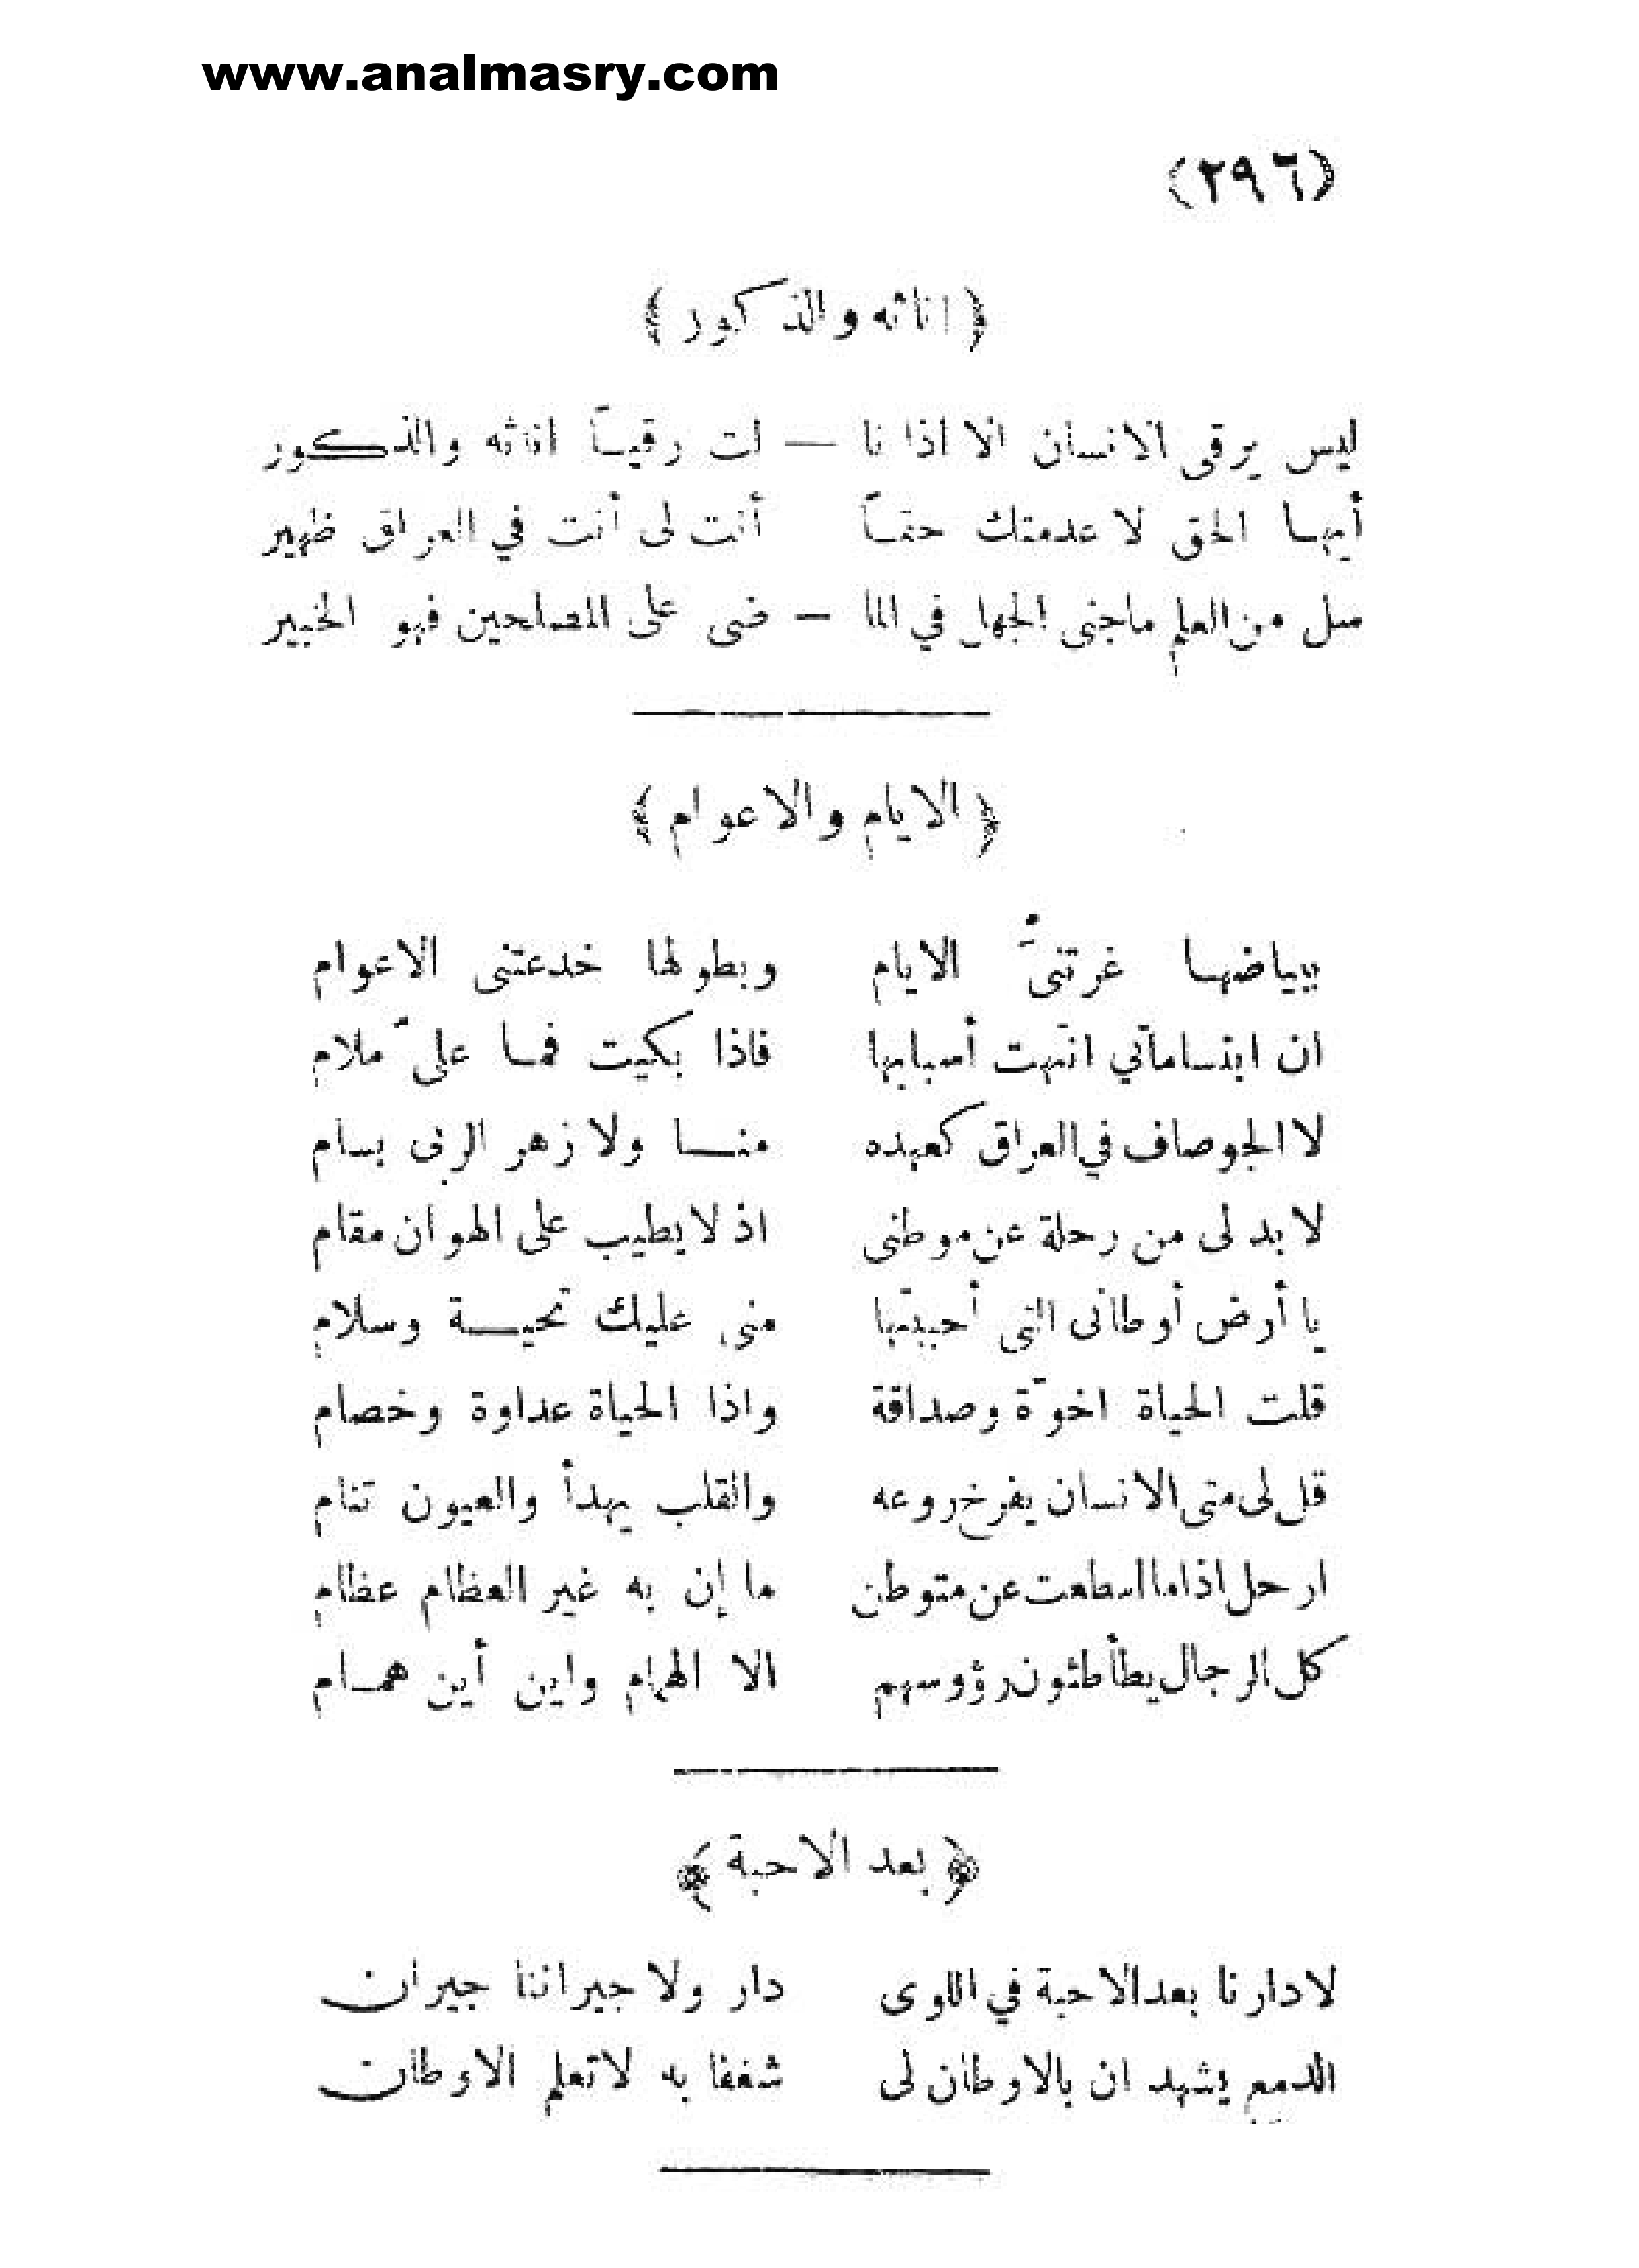 www.analmasry.com
(٢٩٦)
﴿ اناثه والذكور ﴾
ليس يرقى الانسان الا اذا نا — لت رقيـاً اناثه والذكور
أيهـا الحق لا عدمتك حقـاً أنت لى أنت في العراق ظهير
سل من العلم ماجنى الجهل في الما — ضى على المصلحين فهو الخبير
﴿ الايام والاعوام ﴾
ببياضهـا غرتنىَ الايام وبطولها خدعتنى الاعوام
ان ابتساماتي انتهت أسبابها فاذا بكيت فمـا علىّ ملام
لا الجو صاف في العراق كعهده منـــا ولا زهر الربى بسام
لا بد لى من رحلة عن موطنى اذ لا يطيب على الهوان مقام
يا أرض أوطانى التى أحببتها منى عليك تحيـــة وسلام
قلت الحياة اخوّة وصداقة واذا الحياة عداوة وخصام
قل لى متى الانسان يفرخ روعه والقلب يهدأ والعيون تنام
ارحل اذا ما اسطعت عن متوطن ما إن به غير العظام عظام
كل الرجال يطأطئون رؤوسهم الا الهمام واين أين همـام
﴿ بعد الاحبة ﴾
لا دارنا بعد الاحبة في اللوى دار ولا جيراننا جيران
الدمع يشهد ان بالاوطان لى شغفا به لا تعلم الاوطان